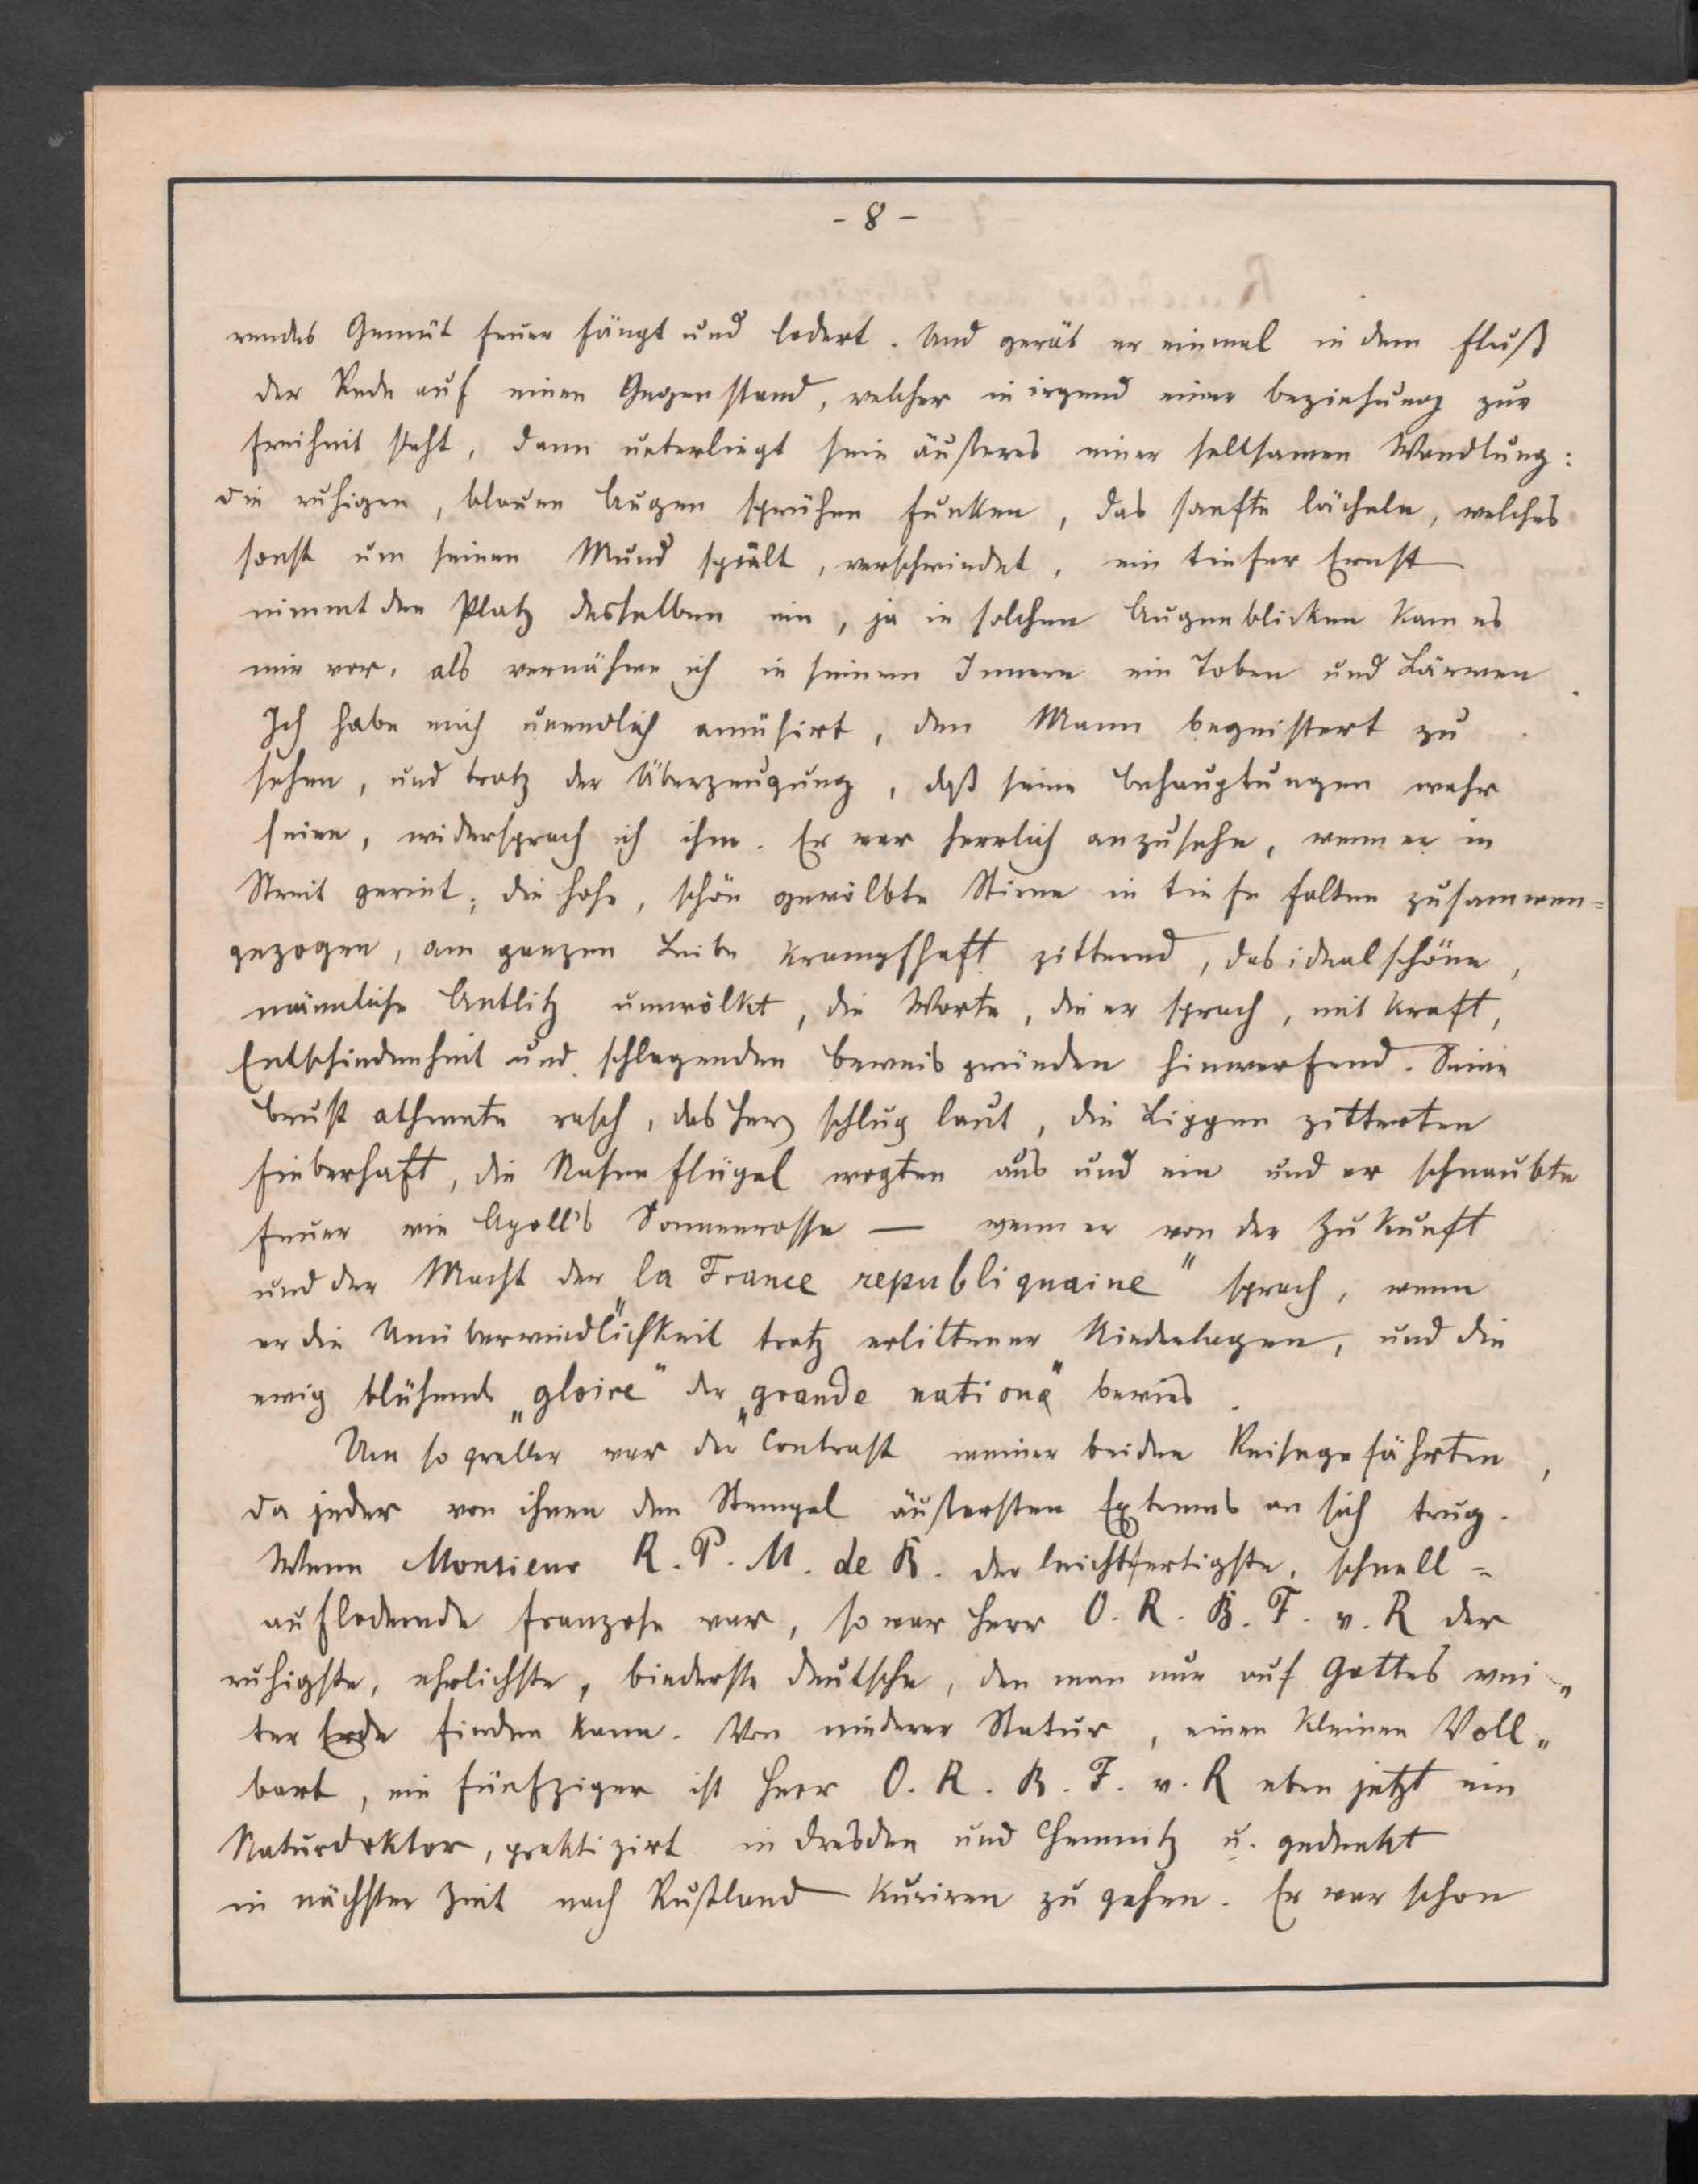 - 8 -
rendes Gemüt feuer fängt und lodert. Und gerät er einmal in dem fluß
der Rede auf einen Gegenstand, welcher in irgend einer beziehung zur
freiheit steht, dann unterliegt sein äußeres einer seltsamen Wandlung:
die ruhigen, blauen Augen sprühen funken, das sanfte lächeln, welches
sonst um seinen Mund spielt, verschwindet, ein tiefer Ernst
nimmt den Platz desselben ein, ja in solchen Augenblicken kam es
mir vor, als vernähme ich in seinem Innern ein Toben und Lärmen.
Ich habe mich unendlich amüsirt, den Mann begeistert zu
sehen, und trotz der Überzeugung, daß seine behauptungen wahr
seien, widersprach ich ihm. Er war herrlich anzusehn, wenn er in
Streit geriet; die hohe, schön gewölbte Stirne in tiefe falten zusammen=
gezogen, am ganzen Leibe krampfhaft zitternd, das ideal schöne,
männliche Antlitz umwölkt, die Worte, die er sprach, mit kraft,
Entschiedenheit und schlagenden beweis gründen hinwerfend. Seine
brust athmete rasch, das herz schlug laut, die Lippen zitterten
fieberhaft, die Nasenflügel wogten aus und ein und er schnaubte
feuer wie Apoll's Sonnenrosse — wenn er von der Zukunft
und der Macht der „la France republiquaine" sprach, wenn
er die Unüberwindlichkeit trotz erlittener Niederlagen, und die
ewig blühende „gloire" der „grande nationa" bewies.
Um so greller war der Contrast meiner beiden Reisegefährten,
da jeder von ihnen den Stempel äußersten Extrems an sich trug.
Wenn Monsieur R. P. M. de B. der leichtfertigste, schnell=
auflodernde franzose war, so war herr O. R. B. F. v. R der
ruhigste, ehrlichste, biederste deutsche, den man nur auf Gottes wei„
ter Erde finden kann. Von niederer Statur, einen kleinen Voll„
bart, ein fünfziger ist herr O. R. B. F. v. R eben jetzt ein
Naturdoktor, praktizirt in dresden und Chemnitz u. gedenkt
in nächster Zeit nach Rußland kuriren zu gehen. Er war schon